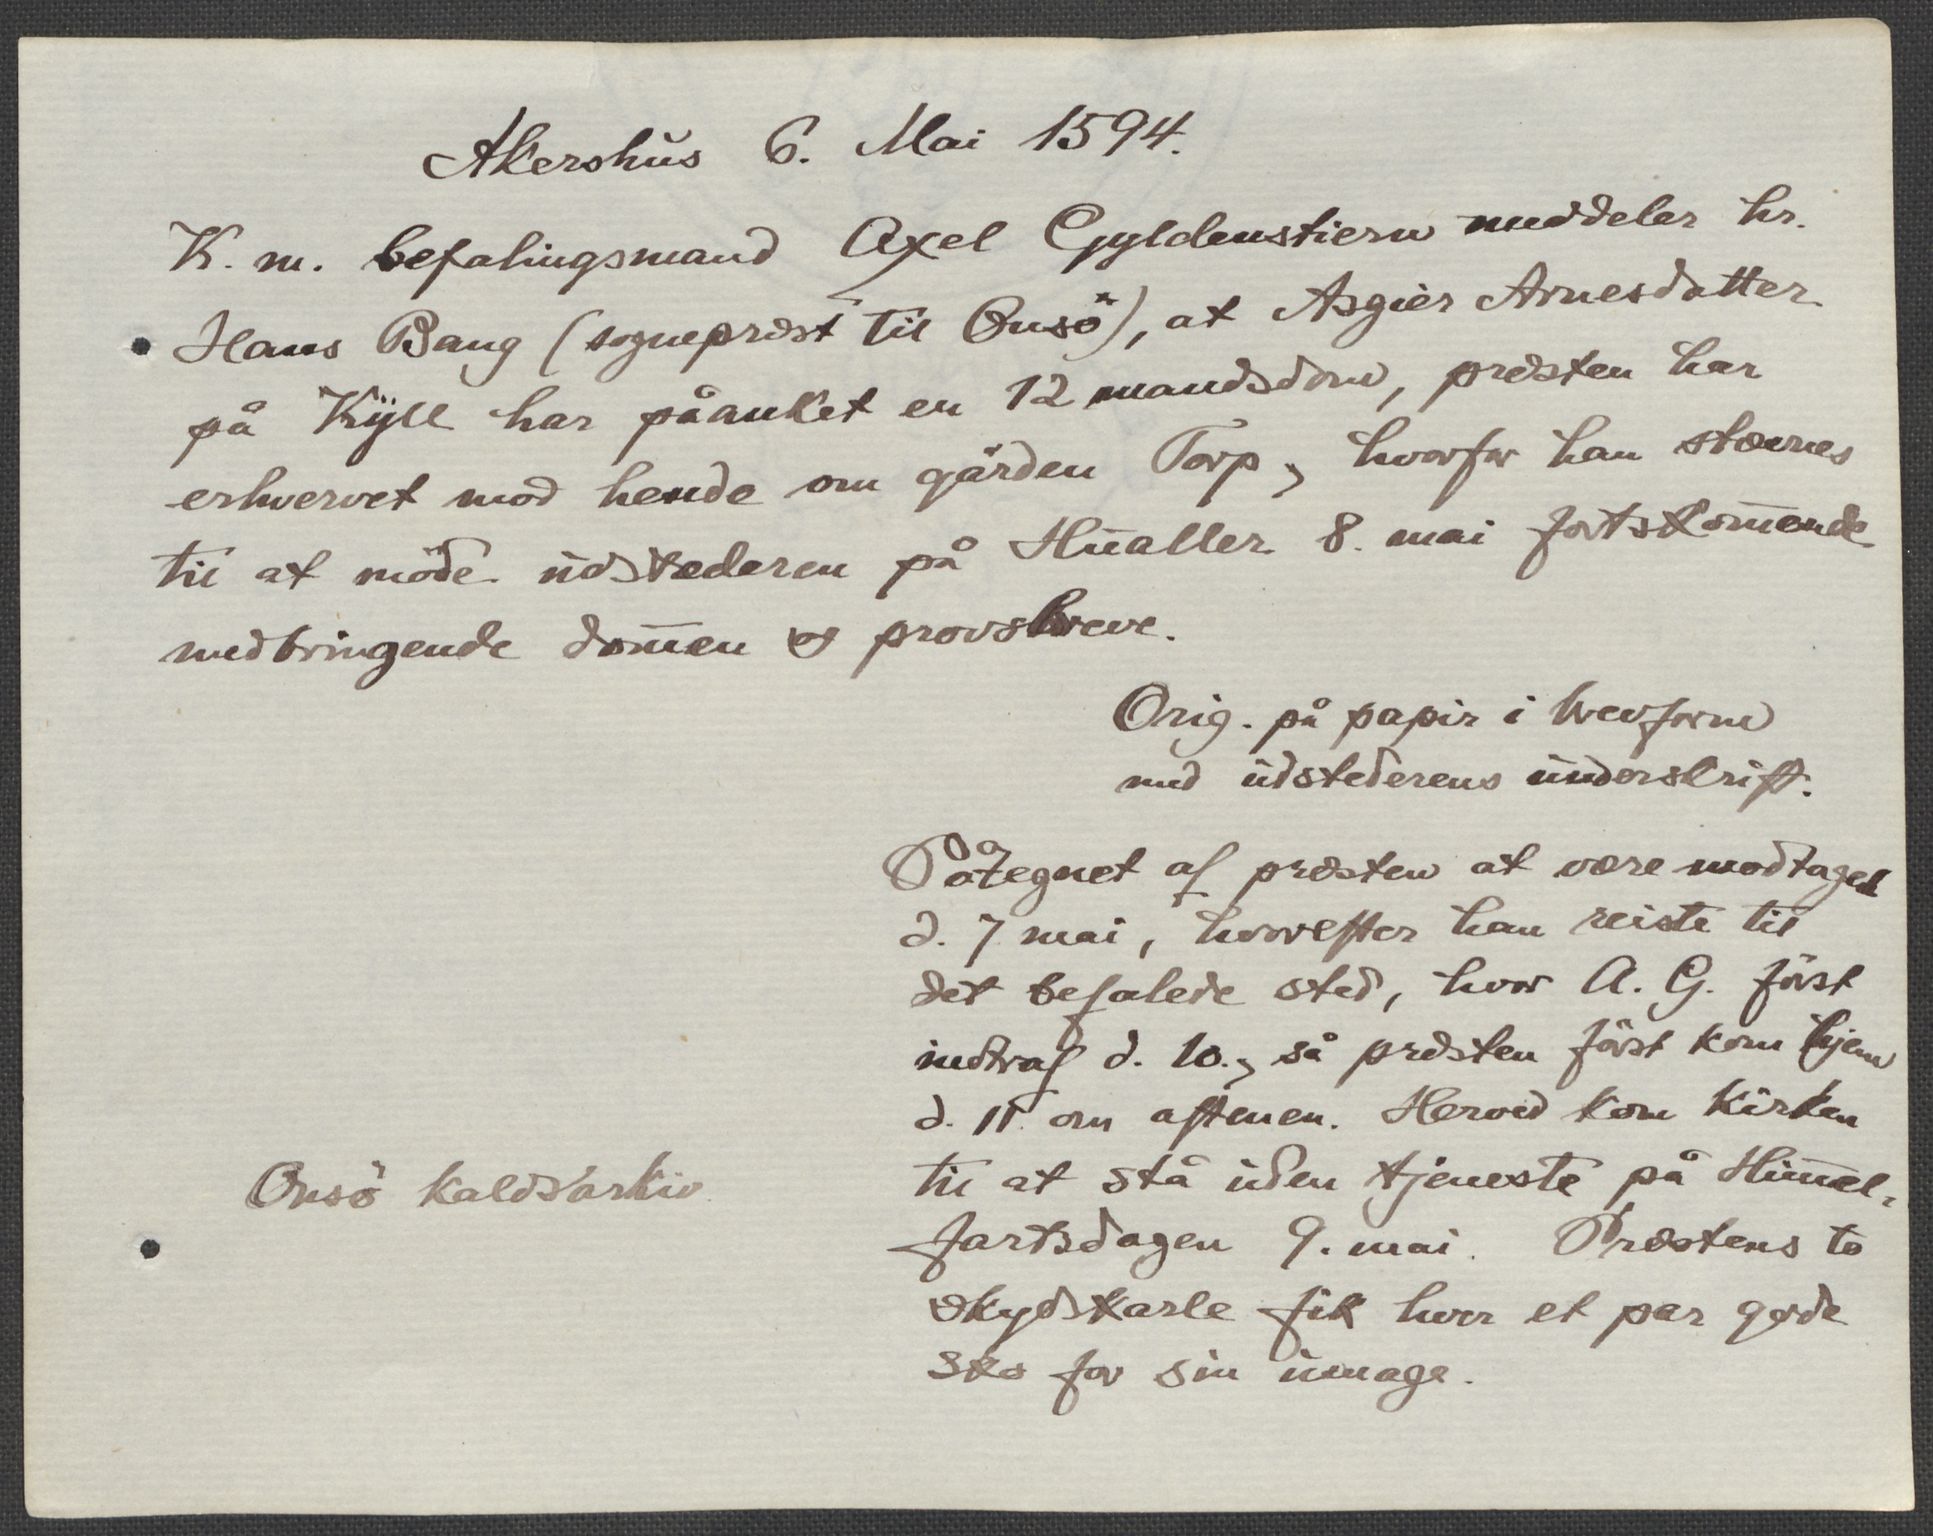 Akershus 6. Mai 1594.
K. m. befalingsmand Axel Gyldenstiern meddeler hr.
Hans Bang (sogneprest til Onsö), at Asgier Arnesdatter
på Kÿll har påanket en 12 mandsdom, presten har
erhvervet mod hende om gården Torp, hvorfor han stævnes
til at möde udstæderen på Hualler 8. mai fortskom̄ende
medbringende dom̄en og provsbreve.
Orig. på papir i brevform
med udstederens underskrift.
Påtegnet af presten at være modtaget
d. 7 mai, hvorefter han reiste til
det befalede sted, hvor A. G. först
indtraf d. 10., så presten först kom hjem
d. 11. om aftenen. Herved kom kirken
til at stå uden tjeneste på Him̄el-
fartsdagen 9. mai. Prestens to
skydskarle fik hver et par gode
sko for sin umage.
Onsö kaldsarkiv